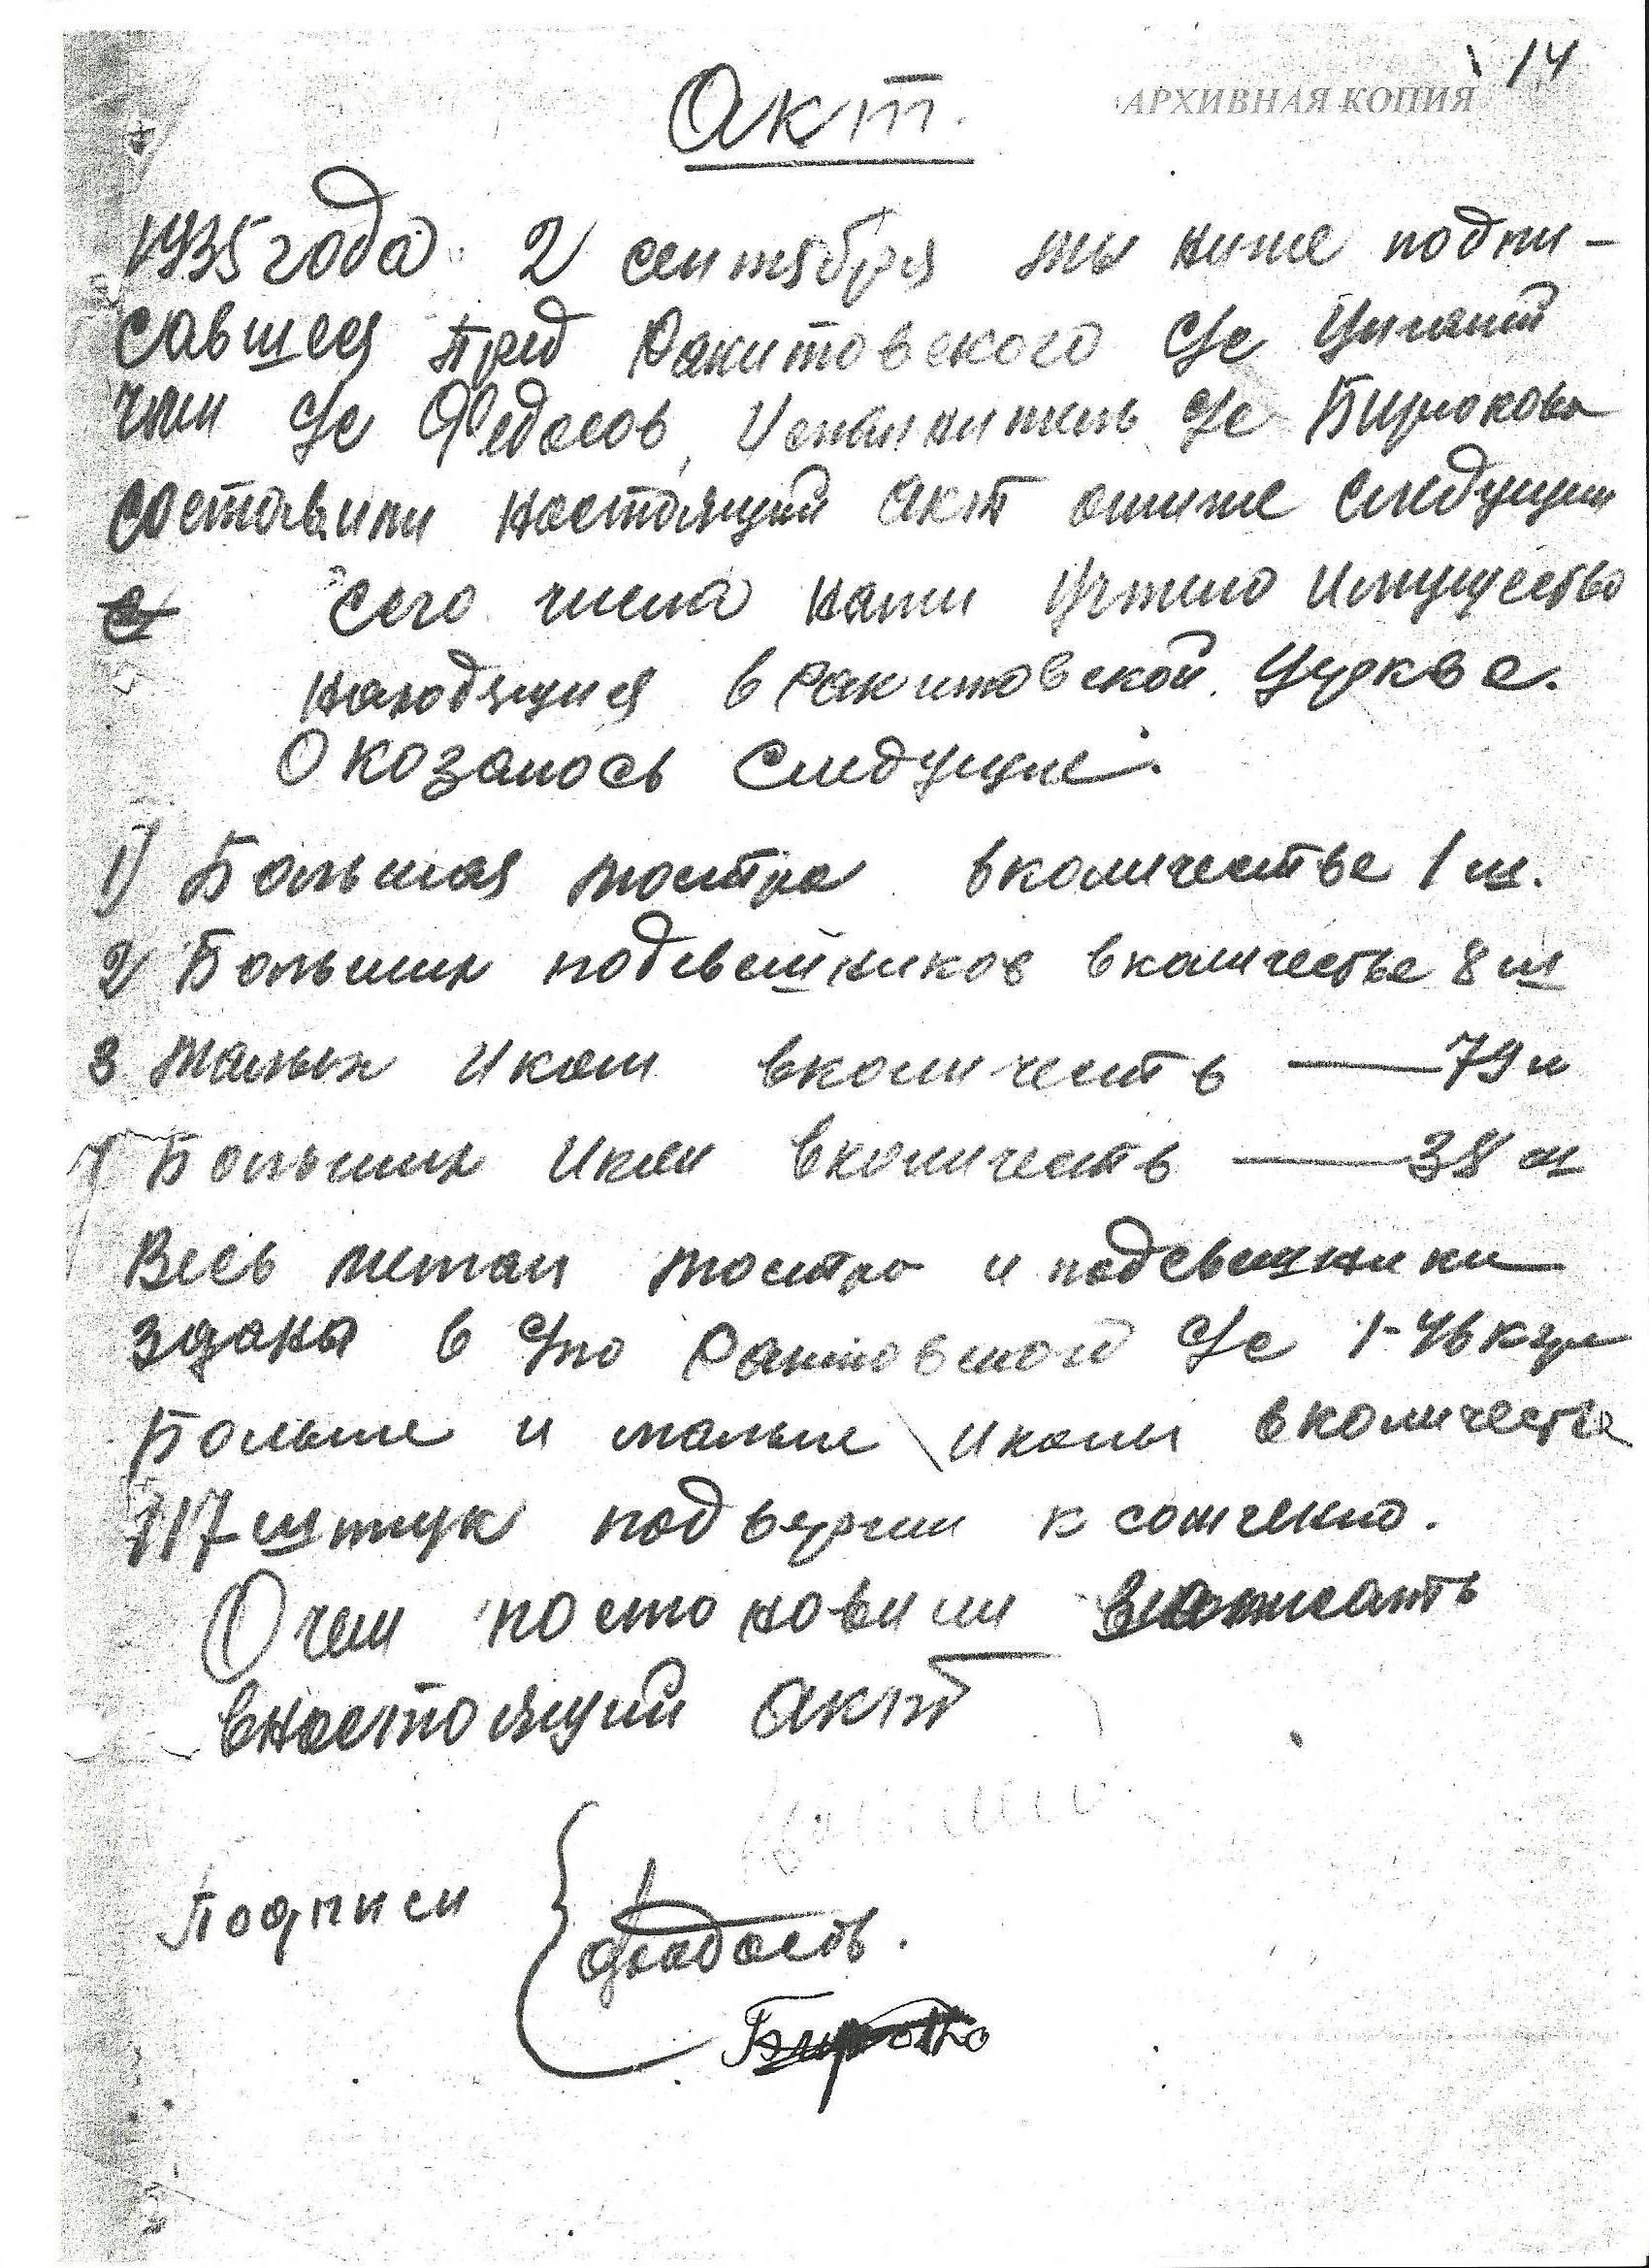 14
АРХИВНАЯ КОПИЯ
Акт.
1935 года 2 сентября мы ниже подпи-
савшея пред Ракитовского С/с
член С/с Федосов, Исполнитель С/с Бирюкова
составили настоящий акт аниже следущим
Сего числа нами Учтено Имущество
находящися в Ракитовской Церкве.
Оказалось Следущие:
1) Большая люстра вколичестве 1 ш.
2 Больших подсвешников вколичестве 8 ш
3 Малых Икон вколичеств — 79 ш
Больших Икон вколичеств — 38 ш
Весь метал люстра и подсвешники
здана в Спо Ракитовской С/с 1-46 кгр
Больше и малые иконы вколичестве
117 штук подвергли к сожжению.
О чем постоновили вписать
внастоящий акт
Подписи
Федосов.